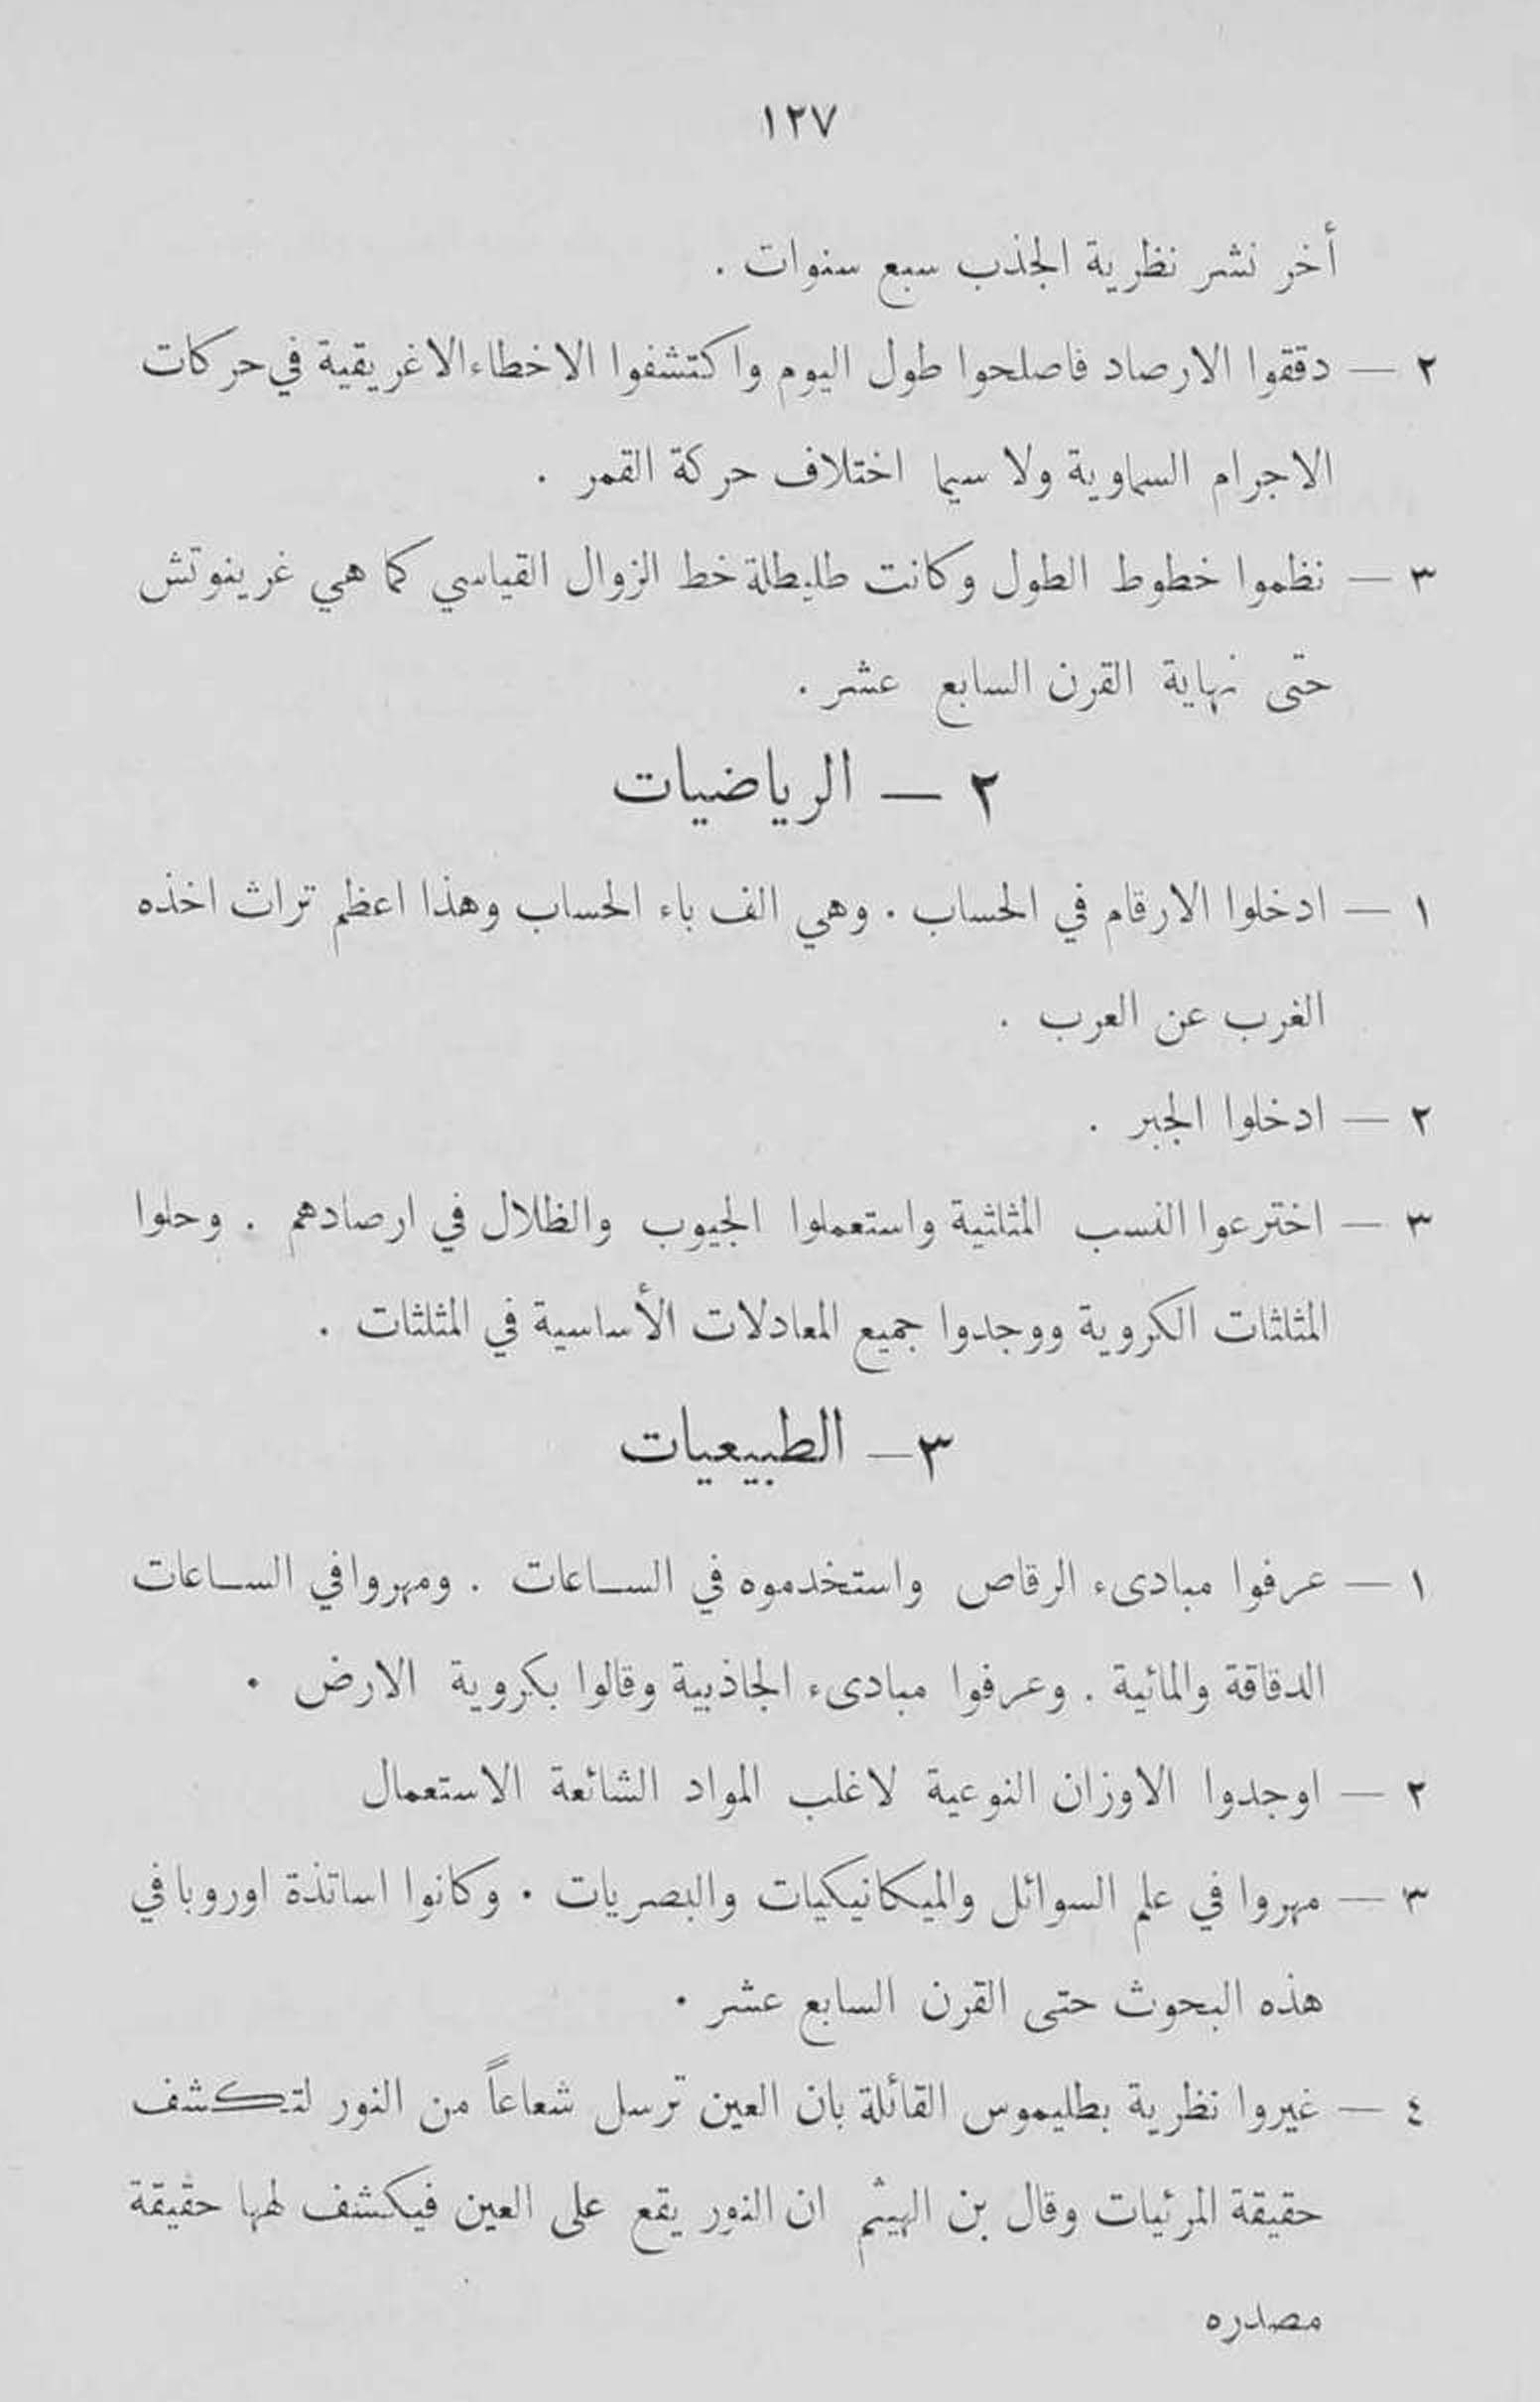 ١٢٧
أخر نشر نظرية الجذب سبع سنوات .
٢ — دققوا الارصاد فاصلحوا طول اليوم واكتشفوا الاخطاء الاغريقية في حركات
الاجرام السماوية ولا سيما اختلاف حركة القمر .
٣ — نظموا خطوط الطول وكانت طليطلة خط الزوال القياسي كما هي غرينوتش
حتى نهاية القرن السابع عشر .
٢ — الرياضيات
١ — ادخلوا الارقام في الحساب . وهي الف باء الحساب وهذا اعظم تراث اخذه
الغرب عن العرب .
٢ — ادخلوا الجبر .
٣ — اخترعوا النسب المثاثية واستعملوا الجيوب والظلال في ارصادهم . وحلوا
المثلثات الكروية ووجدوا جميع المعادلات الأساسية في المثلثات .
٣ — الطبيعيات
١ — عرفوا مبادىء الرقاص واستخدموه في الساعات . ومهروا في الساعات
الدقاقة والمائية . وعرفوا مبادىء الجاذبية وقالوا بكروية الارض .
٢ — اوجدوا الاوزان النوعية لاغلب المواد الشائعة الاستعمال
٣ — مهروا في علم السوائل والميكانيكيات والبصريات . وكانوا اساتذة اوروبا في
هذه البحوث حتى القرن السابع عشر .
٤ — غيروا نظرية بطليموس القائلة بان العين ترسل شعاعاً من النور لتكشف
حقيقة المرئيات وقال بن الهيثم ان النور يقع على العين فيكشف لها حقيقة
مصدره